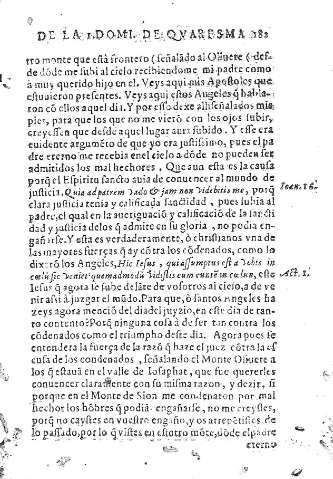 DE LA I. DOMI. DE QVARESMA 282
tro monte que està frontero (señalado al Oliuete (desde
de dõde me subi al cielo recibiendome mi padre como
à muy querido hijo en el. Veys aqui mis Apostoles que
estuuieron presentes. Veys aqui estos Angeles q̃ habla-
ron cõ ellos aquel dia. Y por esso dexe alli señalados mis
pies, para que los que no me vierõ con los ojos subir,
creyessen que desde aquel lugar auia subido. Y esse era
euidente argumẽto de que yo era justissimo, pues el pa
dre eterno me recebia en el cielo a dõde no pueden ser
admitidos los malhechores. Que aun esta es la causa
porq̃ el Espiritu sancto auia de conuencer al mundo de
justicia. Quia ad patrem vado & jam non videbitis me, porq̃
clara justicia tenia y calificada sanctidad, pues subia al
padre, el qual en la aueriguació y calificació de la sancti
dad y justicia delos q̃ admite en su gloria, no podia en-
gañarse. Y esta es verdaderamente, ó christianos vna de
las mayores fuerças q̃ ay cõtra los cõdenados, como lo
dixerõ los Angeles, Hic Iesus, qui assumptus est a vobis in
cælũ sic veniet quemadmodũ vidistis eum euntẽ in cælum, este
Iesus q̃ agora se sube delãte de vosotros al cielo, a de ve
nir assi à juzgar el mũdo. Para que, ó sanctos angeles ha
zeys agora menció del dia del juyzio, en este dia de tan-
to contento? Porq̃ ninguna cosa à de ser tan contra los
cõdenados como el triumpho deste dia. Agora pues se
entendera la fuerça de la razõ q̃ haze el juez cõtra la es
cusa de los condenados, señalando el Monte Oliuete a
los q̃ estauã en el valle de Iosaphat, que fue quererles
conuencer claramente con su misma razon, y dezir, si
porque en el Monte de Sion me condenaron por mal
hechor los hõbres q̃ podiã engañarse, no me creystes,
porq̃ no caystes en vuestro engaño, y os arrepẽtistes de
lo passado, por lo q̃ vistes en estotro mõte, dõde el padre
eterno
Ioan. 16.
Act. 1.